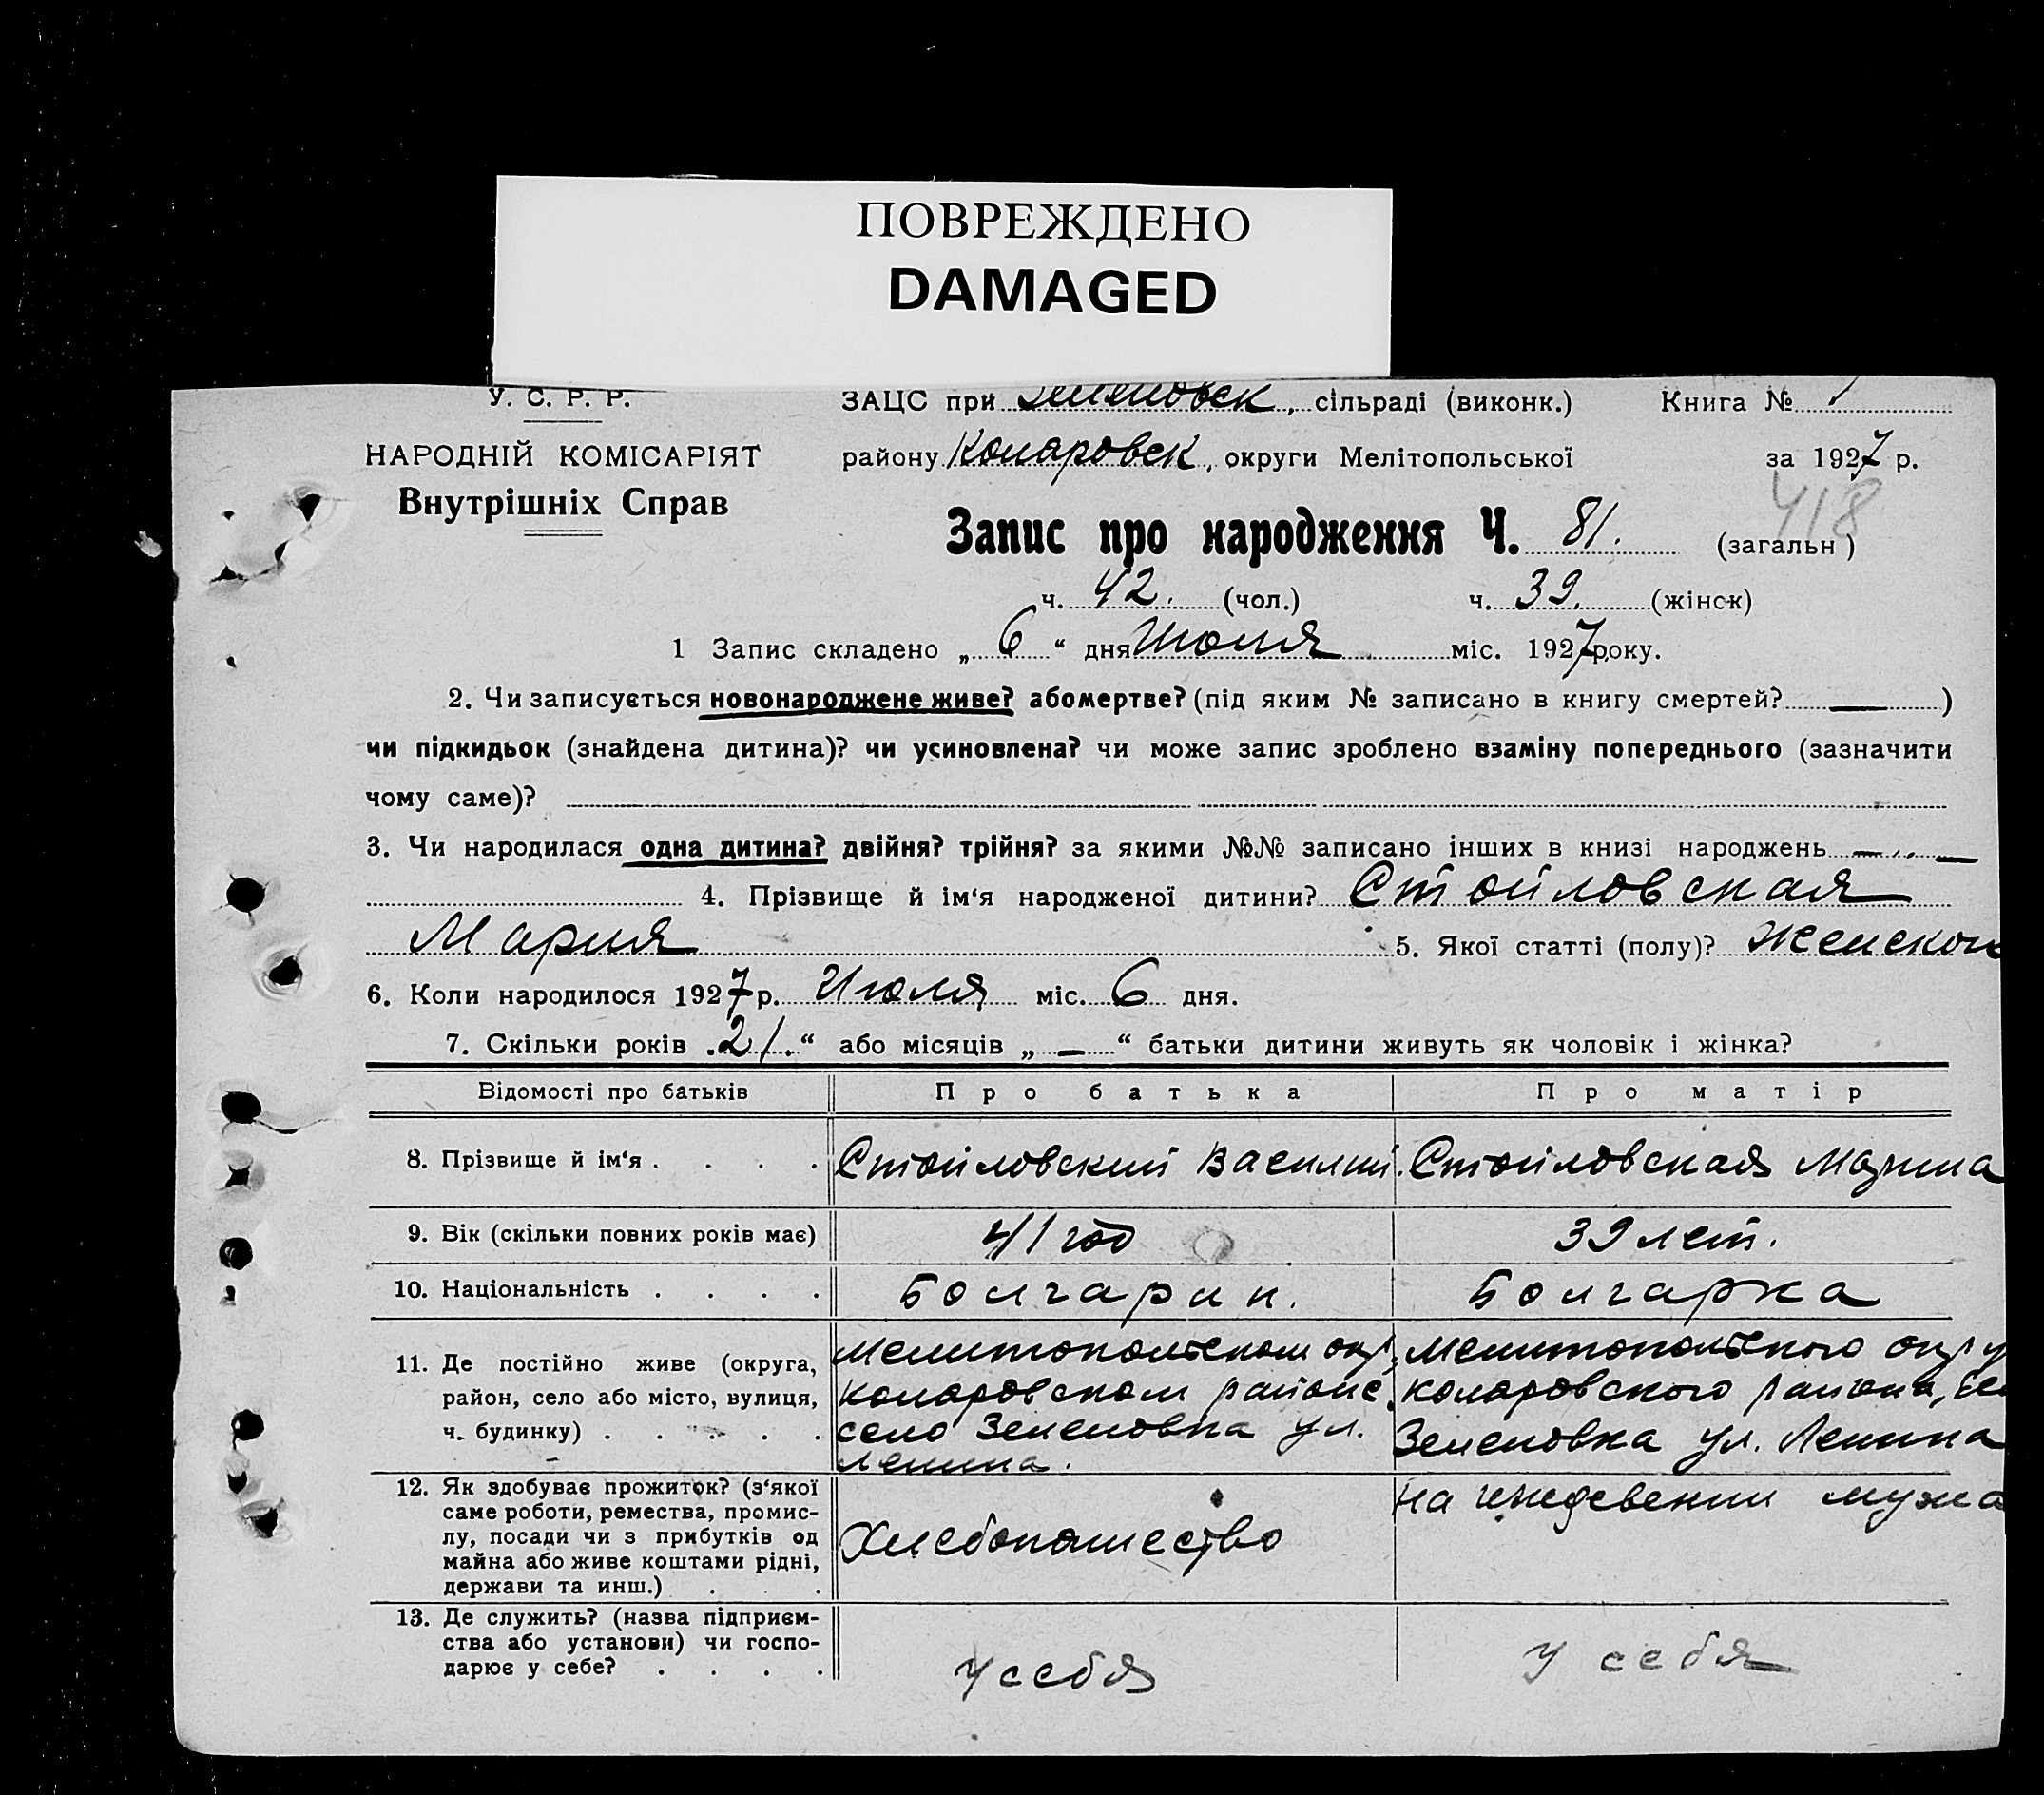 ПОВРЕЖДЕНО
DAMAGED
У. С. Р. Р.
ЗАЦС при Зеленовск, сільраді (виконк.) Книга № 1
НАРОДНІЙ КОМІСАРІЯТ
району Коларовск, округи Мелітопольської за 1927 р.
Внутрішніх Справ
418
Запис про народження Ч. 81. (загальн)
ч. 42. (чол.) ч. 39. (жінск)
1 Запис складено „ 6 “ дня Июля міс. 1927 року.
2. Чи записується новонароджене живе? або мертве? (під яким № записано в книгу смертей? — )
чи підкидьок (знайдена дитина)? чи усиновлена? чи може запис зроблено взаміну попереднього (зазначити
чому саме)?
3. Чи народилася одна дитина? двійня? трійня? за якими №№ записано інших в книзі народжень — „ —
4. Прізвище й ім‘я народженої дитини? Стойловская
Мария 5. Якої статті (полу)? Женского
6. Коли народилося 1927 р. Июля міс. 6 дня.
7. Скільки років „ 21. “ або місяців „ — “ батьки дитини живуть як чоловік і жінка?
Відомості про батьків Про батька Про матір
8. Прізвище й ім‘я . . . . Стойловский Василий. Стойловская Марина
9. Вік (скільки повних років має) 41 год 39 лет.
10. Національність . . . . Болгарин. Болгарка
11. Де постійно живе (округа,
район, село або місто, вулиця,
ч. будинку) . . . . .
Мелитопольском окр,
Коларовском районе,
село Зеленовка ул.
Ленина.
Мелитопольского окру
Коларовского района, се
Зеленовка ул. Ленина
12. Як здобуває прожиток? (з‘якої
саме роботи, ремества, промис-
лу, посади чи з прибутків од
майна або живе коштами рідні,
держави та инш.) . . .
Хлебопашество
На иждевении мужа
13. Де служить? (назва підприєм-
ства або установи) чи госпо-
дарює у себе? . . . .
У себя
У себя